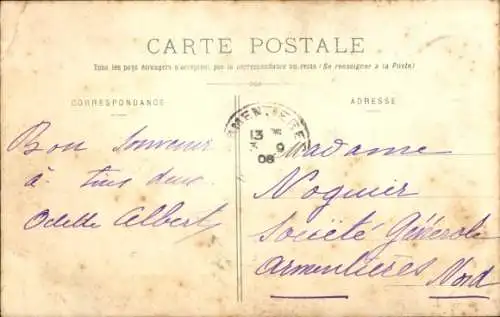 CARTE POSTALE
Tous les pays étrangers n'acceptent pas la correspondance au recto (Se renseigner à la Poste)
CORRESPONDANCE
ADRESSE
ARMENTIERES
13
9
08
Bon Souvenir
à tous deux
Odette Albert
Madame
Noguier
Société Générale
Armentières Nord